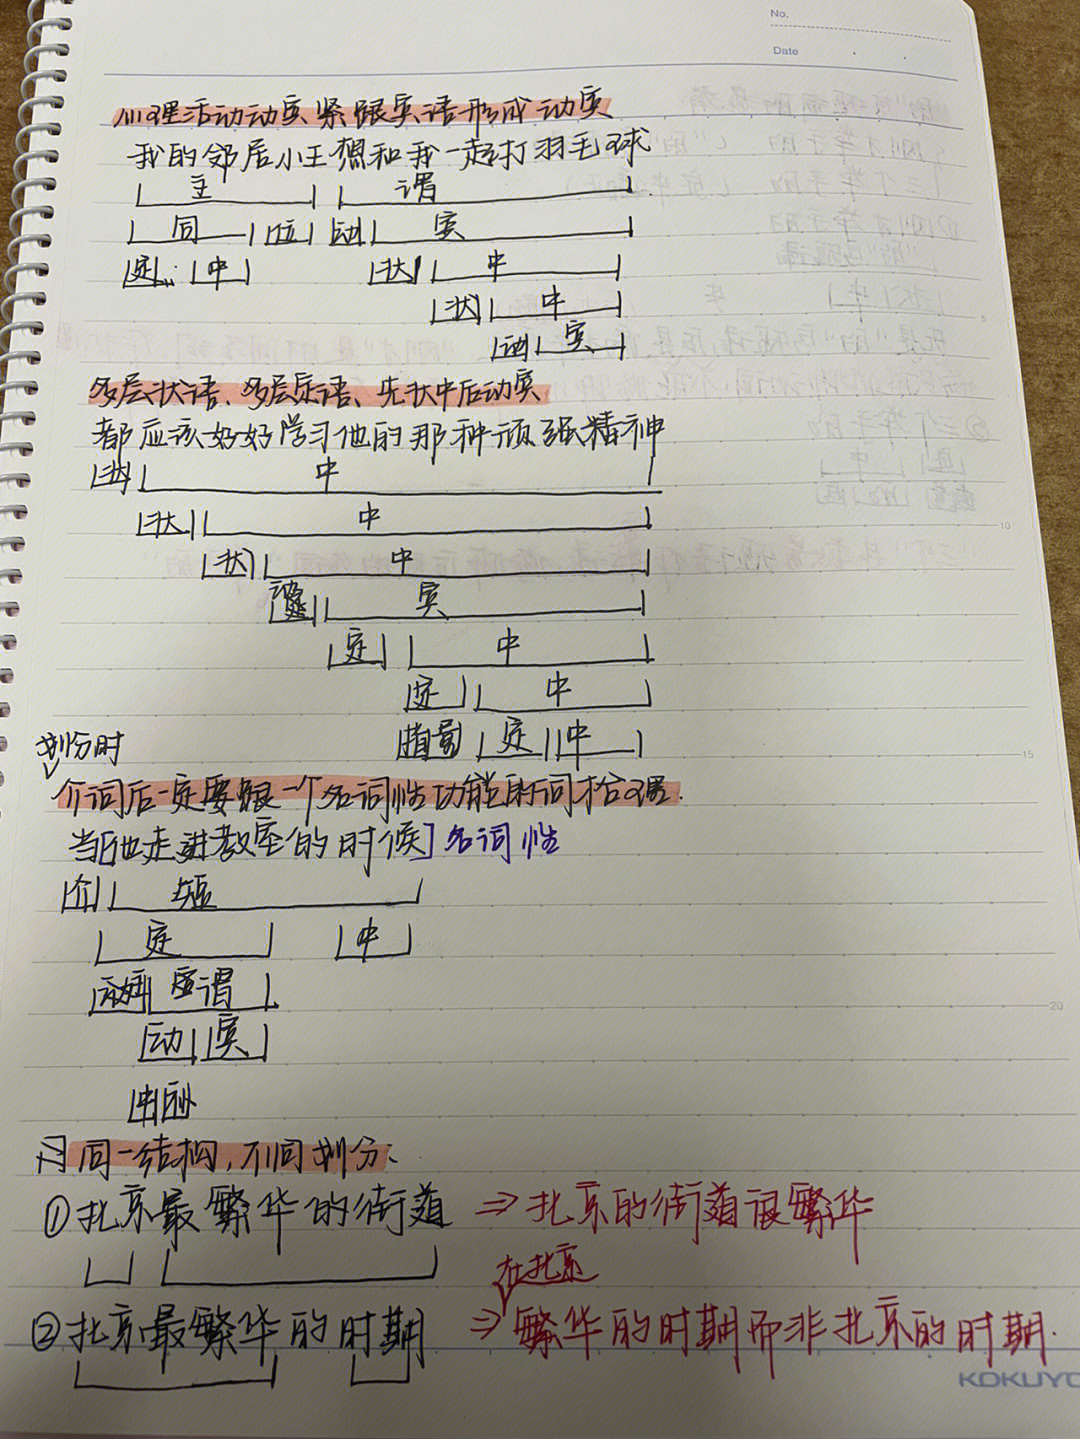 No.
Date
心理活动动宾紧跟宾语形成动宾
我的邻居小王想和我一起打羽毛球
主 谓
同 位 动 宾
定 中 状 中
状 中
动 宾
多层状语、多层定语、先状中后动宾
都应该好好学习他的那种顽强精神
状 中
状 中
状 中
宾
定 中
定 中
指量 定 中
划分时
介词后一定要跟一个名词性功能的词格
当他走进教室的时候]名词性
介 短
定 中
谓
动 宾
同一结构,不同划分:
①北京最繁华的街道 ⇒北京的街道很繁华
在北京
②北京最繁华的时期 ⇒繁华的时期而非北京的时期.
10
15
20
KOKUYO